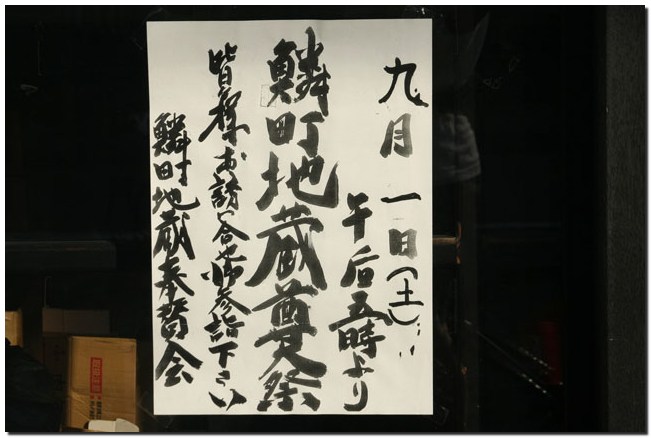 九月一日(土)
午后五時より
鱗町地蔵尊祭
皆様お誘い合せ御参詣下さい
鱗町地蔵奉賛会